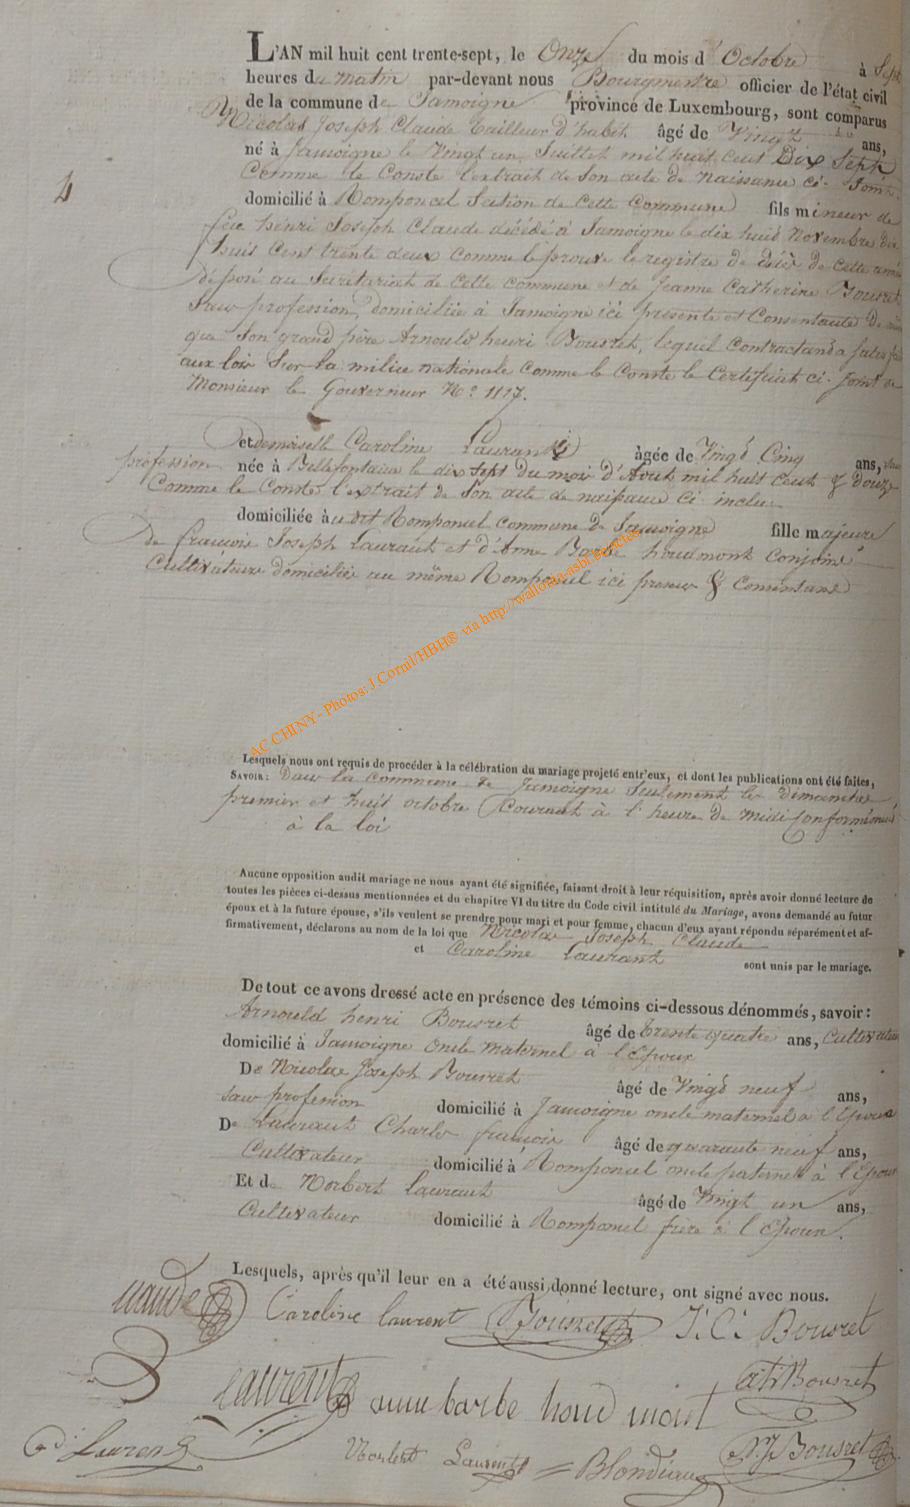 L'AN mil huit cent trente-sept, le Onze du mois d'Octobre à Sept
heures du matin par-devant nous Bourgmestre officier de l'état civil
de la commune de Jamoigne province de Luxembourg, sont comparus
Nicolas Joseph Claude tailleur d'habit âgé de Vingt ans,
né à Jamoigne le Vingt un Juillet mil huit cent Dix Sept
Comme le Conste l'extrait de Son acte de naissance ci-Joint
domicilié à Romponcel Section de cette Commune fils mineur de
feu henri Joseph Claude décédé à Jamoigne le dix huit Novembre dix
huit Cent trente deux comme le prouve le registre de décès de cette année
Déposé au Secrétariat de cette commune et de Jeanne Catherine Bousret
Sans profession, domiciliée à Jamoigne ici présente et Consentante De
que Son grand père Arnould henri Bousret, lequel Contractant a satisfait
aux lois Sur la milice nationale Comme le Conste le Certificat ci-Joint de
Monsieur le Gouverneur N° 1117.
4
et demoiselle Caroline Laurant âgée de Vingt Cinq ans, sans
profession née à Bellefontaine le dix Sept Du mois d'Aout mil huit Cent & Douze
Comme le Conste l'extrait de Son acte de naissance Ci inclu.
domiciliée au dit Romponcel Commune De Jamoigne fille majeure
De francois Joseph Laurant et d'Anne Barbe houdmont Conjoins
Cultivateurs domiciliés au même Romponcel ici présens & Consentans
AC CHINY - Photos: J.Cornil/HBH® via http://wallonia-asbl.be/actes
Lesquels nous ont requis de procéder à la célébration du mariage projeté entr'eux, et dont les publications ont été faites,
SAVOIR: Dans la commune de Jamoigne Seulement les dimanches
premier et huit octobre Courant à l'heure de midi Conformément
à la loi
Aucune opposition audit mariage ne nous ayant été signifiée, faisant droit à leur réquisition, après avoir donné lecture de
toutes les pièces ci-dessus mentionnées et du chapitre VI du titre du Code civil intitulé du Mariage, avons demandé au futur
époux et à la future épouse, s'ils veulent se prendre pour mari et pour femme, chacun d'eux ayant répondu séparément et af-
firmativement, déclarons au nom de la loi que Nicolas Joseph Claude
et Caroline Laurant sont unis par le mariage.
De tout ce avons dressé acte en présence des témoins ci-dessous dénommés, savoir:
Arnould henri Bousret âgé de trente quatre ans, Cultivateur
domicilié à Jamoigne oncle maternel à l'Epoux
De Nicolas Joseph Bousret âgé de Vingt neuf ans,
Sans profession domicilié à Jamoigne oncle maternel à l'Epoux
De Laurant Charles françois âgé de quarante neuf ans,
Cultivateur domicilié à Romponcel oncle paternel à l'Epouse
Et de Norbert Laurant âgé de Vingt un ans,
Cultivateur domicilié à Romponcel frère à l'Epouse.
Lesquels, après qu'il leur en a été aussi donné lecture, ont signé avec nous.
Claude Caroline laurent Bousret J. C. Bousret
laurent anne barbe houdmont ah Bousret
Laurent Norbert Laurent Blondiau N.J. Bousret